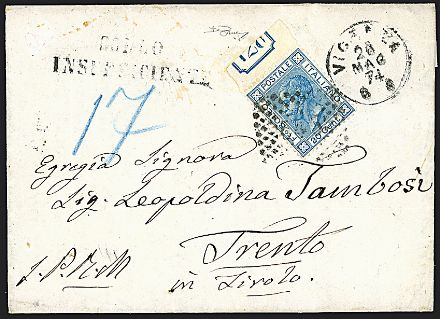 BOLLO
INSUFFICIENTE
17
POSTALE ITALIANO
20 CENT
VICENZA
28
MAG
74
Egregia Signora
Sig. Leopoldina Tambosi
Trento
in Tirolo.